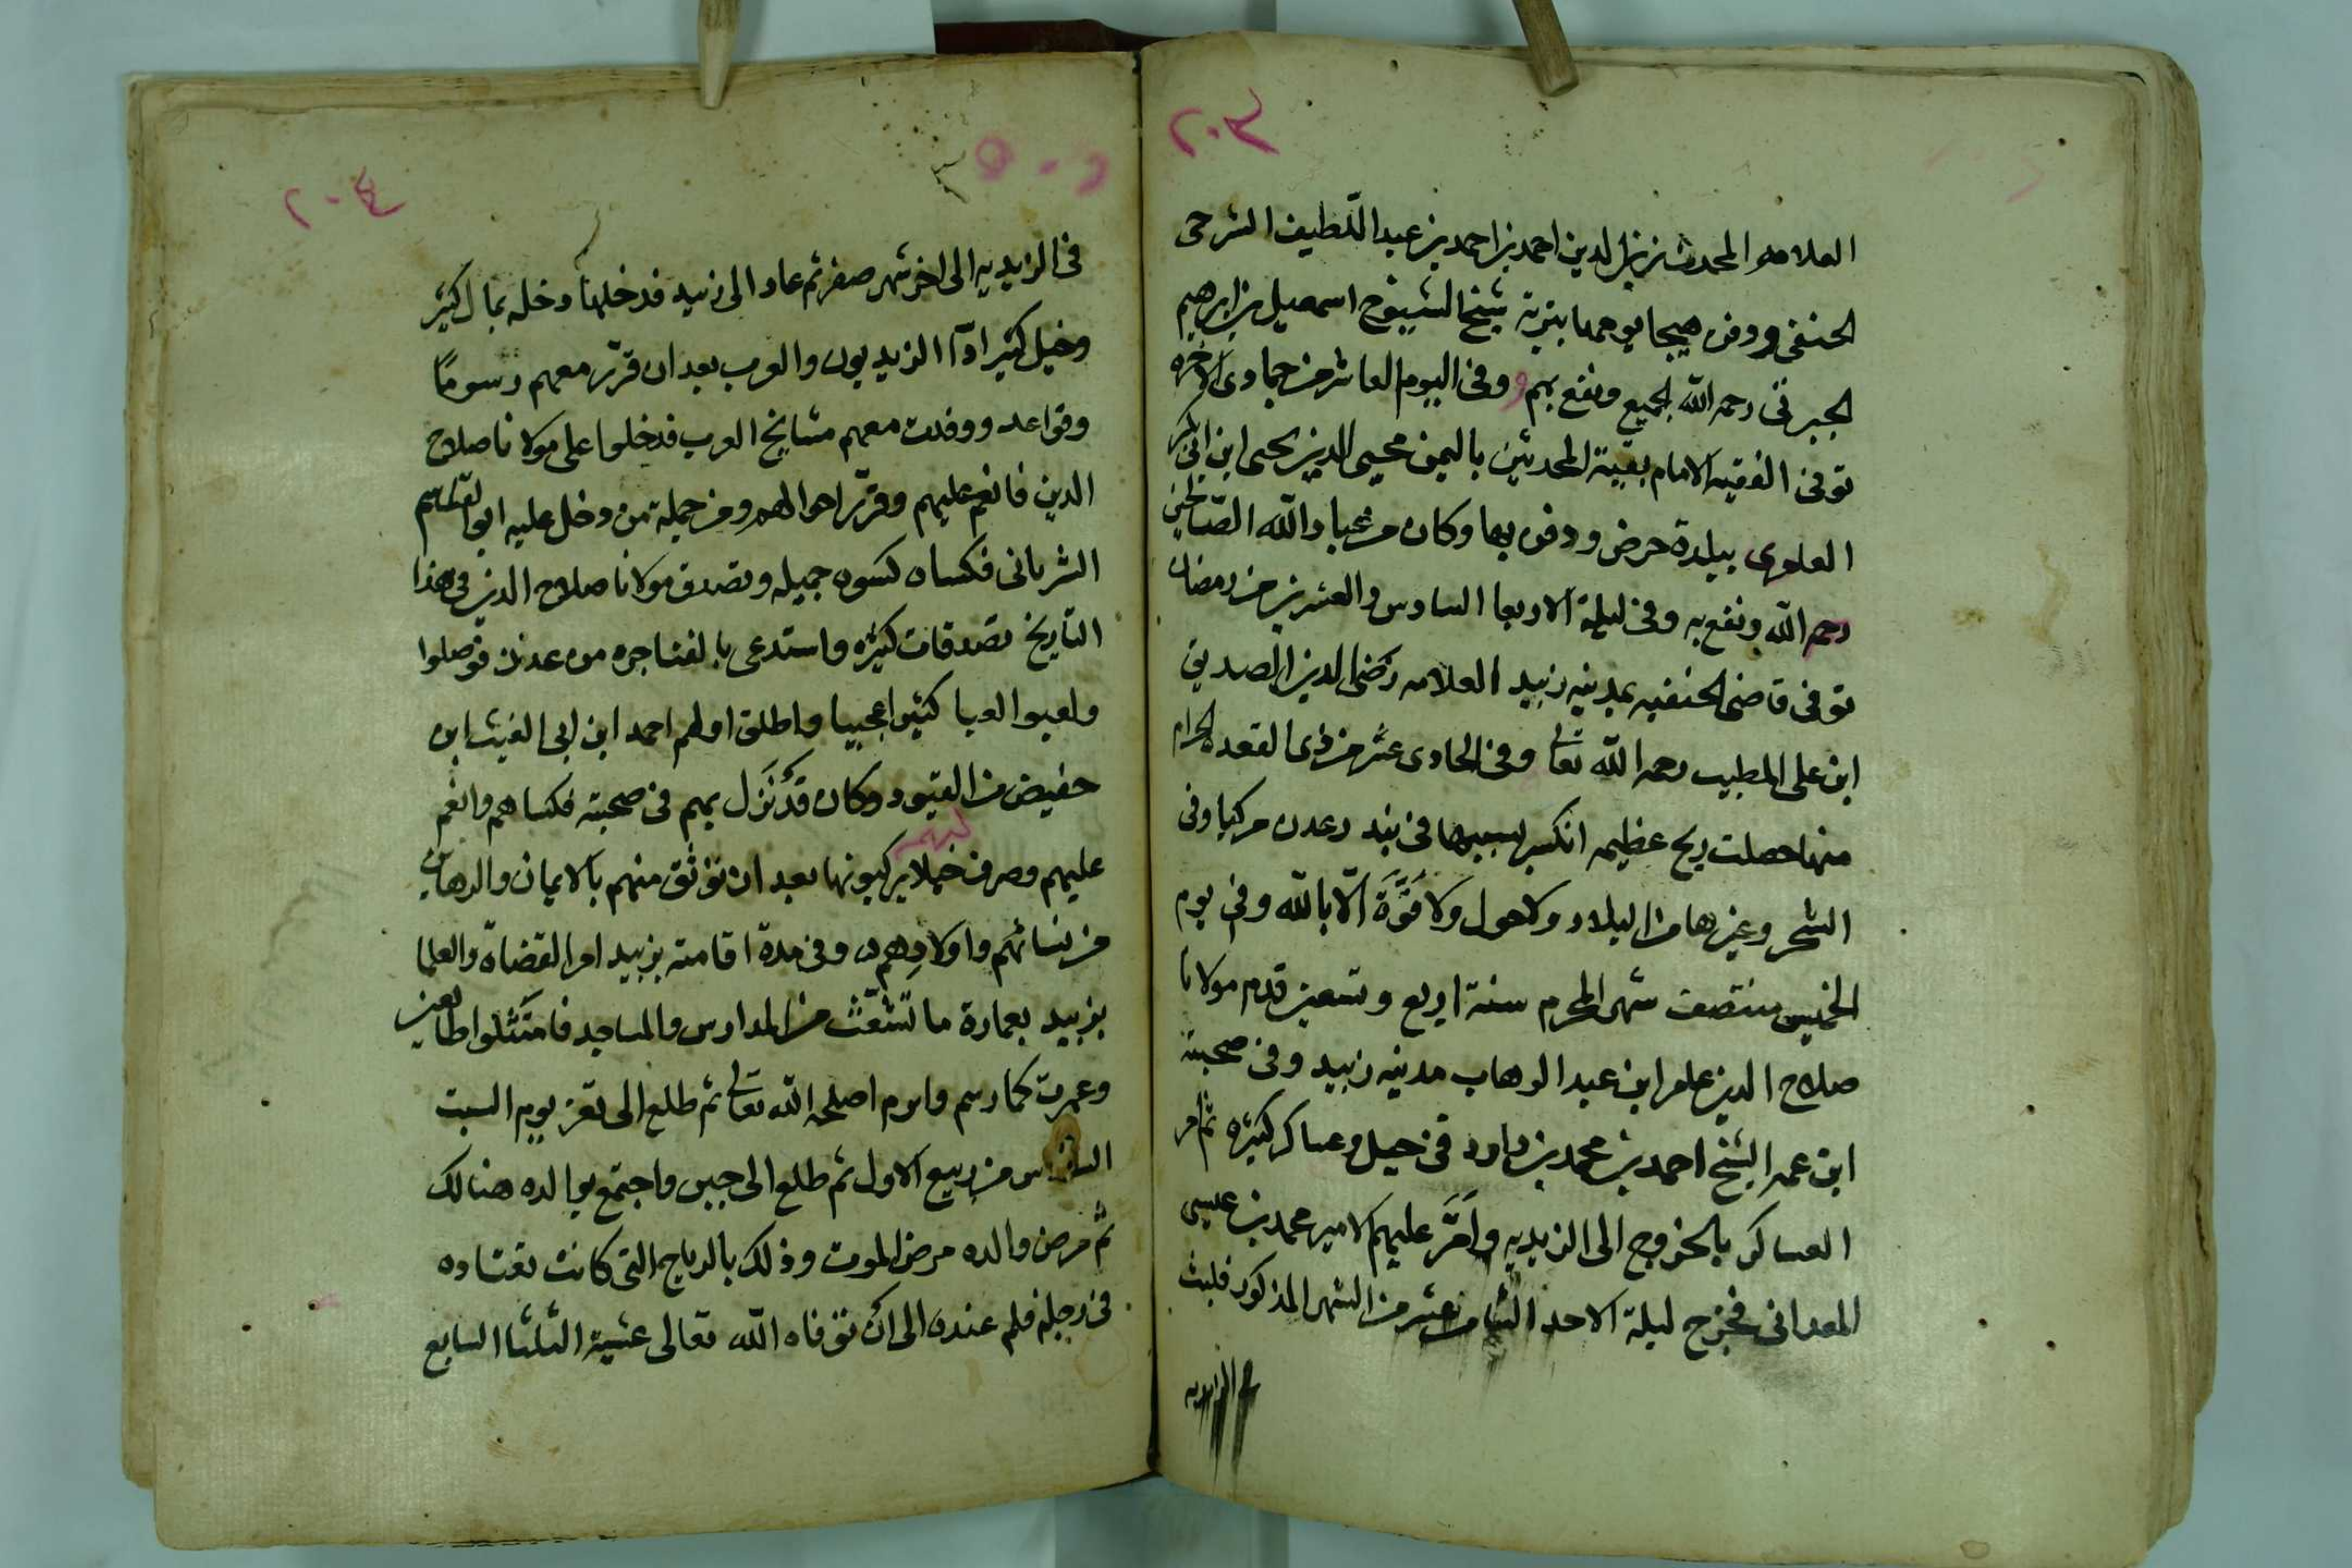 ٢٠٣
العلامه المحدث زين الدين احمد بن احمد بن عبد اللطيف الشرجى
الحنفى ودفن صبحا يومها بتربة شيخ الشيوخ اسمعيل بن ابرهيم
الجبرتى رحمه الله الجميع ونفع بهم وفى اليوم العاشر من جمادى الاخره
توفى الفقيه الامام بقية المحدثين باليمن محيى الدين يحيى ابن ابى بكر
العامرى ببلدة حرض ودفن بها وكان من عباد الله الصالحين
رحمه الله ونفع به وفى ليلة الاربعا السادس والعشرين من رمضان
توفى قاضى الحنفيه بمدينه زبيد العلامه رضى الدين الصديق
ابن على المطيب رحمه الله تعالى وفى الحادى عشر من ذى القعده الحرام
منها حصلت ريح عظيمه انكسر بسببها فى بندر عدن مركبا وفى
الشحر وغيرها من البلاد ولا حول ولا قوة الا بالله وفى يوم
الخميس منتصف شهر المحرم سنة اربع وتسعين قدم مولانا
صلاح الدين عامر ابن عبد الوهاب مدينه زبيد وفى صحبته
ابن عمه الشيخ احمد بن محمد بن داود فى خيل وعساكر كثيره ثم امر
العساكر بالخروج الى الزيديه وامَّر عليهم الامير محمد بن عيسى
البعدانى فخرج ليلة الاحد الثامن عشر من الشهر المذكور فلبث
فى الزيديه
٢٠٤
فى الزيديه الى اخر شهر صفر ثم عاد الى زبيد فدخلها دخله بمال كثير
وخيل كثير اداا الزيديون والعرب بعد ان قرر معهم رسومًا
وقواعد ووفدت معهم مشايخ العرب فدخلوا على مولانا صلاح
الدين فانعم عليهم وقرر احوالهم ومن جملة من دخل عليه ابو القاسم
الشريانى فكساه كسوه جميله وتصدق مولانا صلاح الدين فى هذا
التاريخ تصدقات كثيره واستدعى بالفناجره من عدن فوصلوا
ولعبوا لعبا كثيرا عجيبا واطلق اولهم احمد ابن ابى الغيث ابن
حفيض من القيود وكان قد نزل بهم فى صحبته فكساهم وانعم
عليهم وصرف لهم خيلا يركبونها بعد ان توثق منهم بالايمان والرهاين
من نسائهم واولادهم وفى مدة اقامته بزبيد امر القضاة والعلما
بزبيد بعمارة ما تشعث من المدارس والمساجد فامتثلوا طايعين
وعمرت كما رسم وامر اصلحه الله تعالى ثم طلع الى تعز يوم السبت
السادس من ربيع الاول ثم طلع الى جبن واجتمع بوالده هنالك
ثم مرض والده مرض الموت وذلك بالرياح التى كانت تعتاده
فى رجليه فلم عنده الى ان توفاه الله تعالى عشية الثلثا السابع